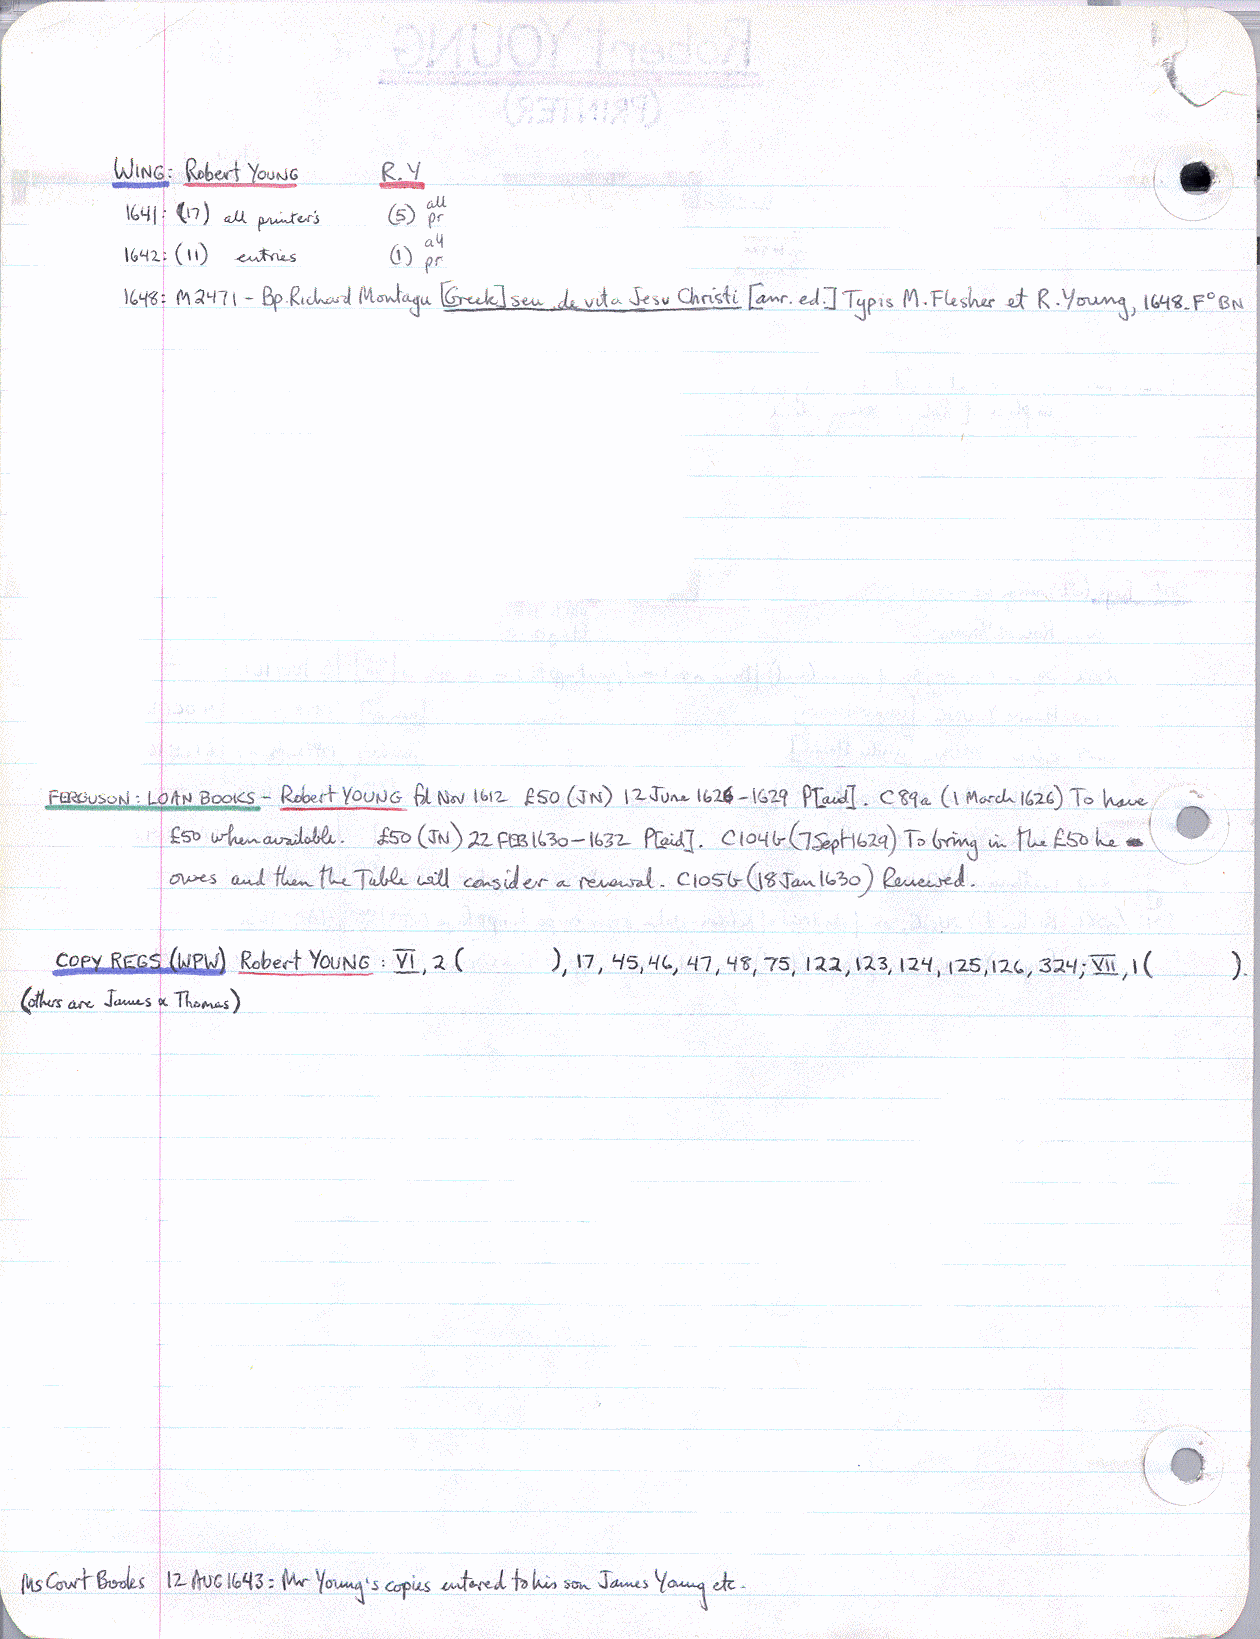 WING: Robert YOUNG R.Y
1641: (17) all printer's (5) all pr
1642: (11) entries (1) all pr
1648: M2471 - Bp. Richard Montagu [Greek] seu de vita Jesu Christi [anr. ed.] Typis M. Flesher et R. Young, 1648. F° BN
FERGUSON: LOAN BOOKS - Robert YOUNG fd Nov 1612 £50 (JN) 12 June 1626-1629 P[aid]. C89a (1 March 1626) To have
£50 when available. £50 (JN) 22 FEB 1630-1632 P[aid]. C104b (7 Sept 1629) To bring in the £50 he
owes and then the Table will consider a renewal. C105b (18 Jan 1630) Renewed.
COPY REGS (WPW) Robert YOUNG: VI, 2 ( ), 17, 45, 46, 47, 48, 75, 122, 123, 124, 125, 126, 324; VII, 1 ( ).
(others are James & Thomas)
Ms Court Books 12 AUG 1643: Mr Young's copies entered to his son James Young etc.